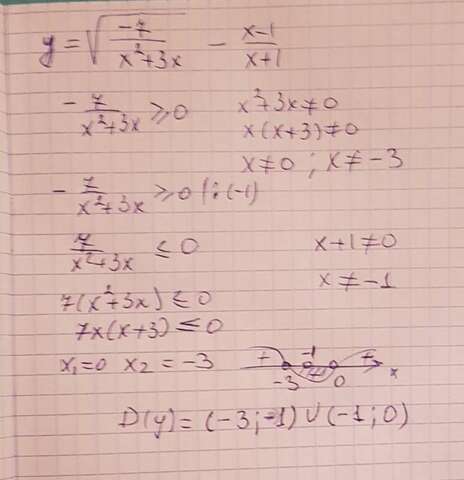 y = √(-7/(x²+3x)) - (x-1)/(x+1)
-7/(x²+3x) ≥ 0 x²+3x ≠ 0
x(x+3) ≠ 0
x ≠ 0 ; x ≠ -3
-7/(x²+3x) ≥ 0 |:(-1)
7/(x²+3x) ≤ 0 x+1 ≠ 0
x ≠ -1
7(x²+3x) ≤ 0
7x(x+3) ≤ 0
x₁=0 x₂ = -3 + -1 + x
-3 0
D(y) = (-3;-1) ∪ (-1;0)